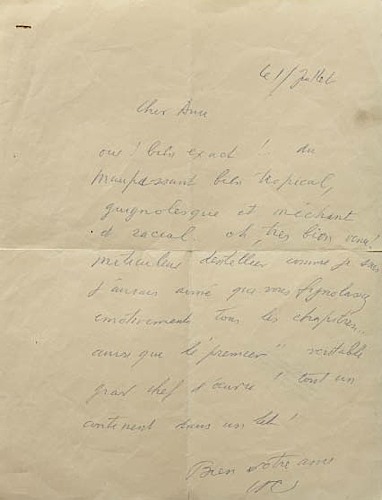 le 1/Juillet
Cher Ami
oui ! bien exact ! du
Maupassant bien tropical,
guignolesque et méchant
et racial. oh, très bien venu !
méticuleux dentellier comme je suis
j'aurais aimé que vous fignolassiez
tous les chapitres...
ainsi que le "premier" véritable
gros chef d'œuvre ! tout un
continent dans un lit !
Bien votre ami